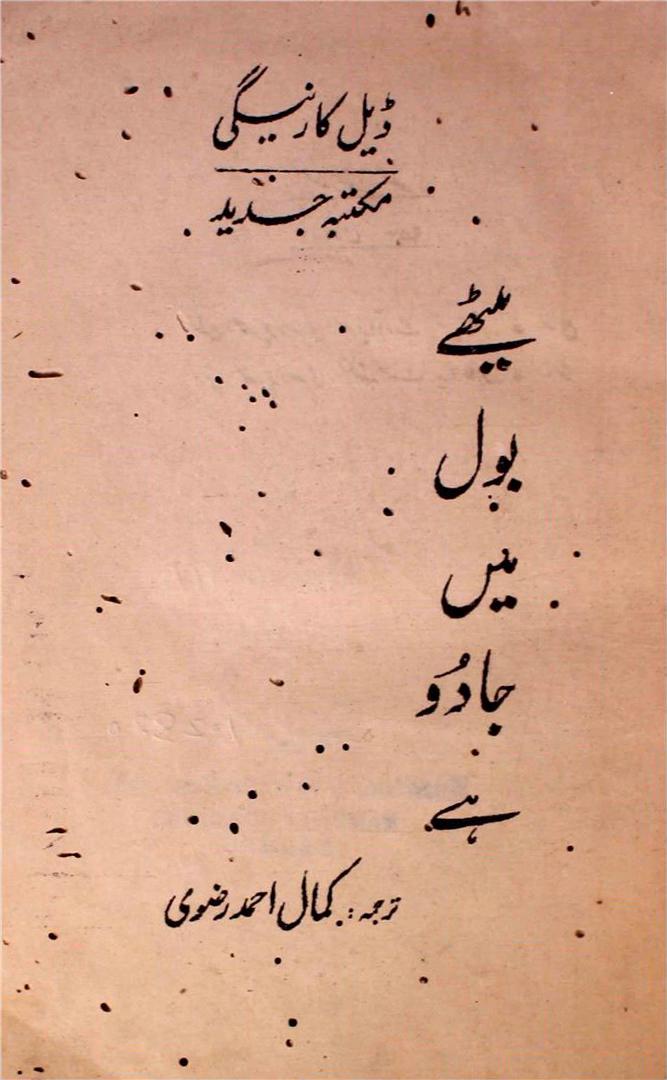 ڈیل کارنیگی
مکتبہ جدید
میٹھے
بول
میں
جادُو
ہے
ترجمہ: کمال احمد رضوی